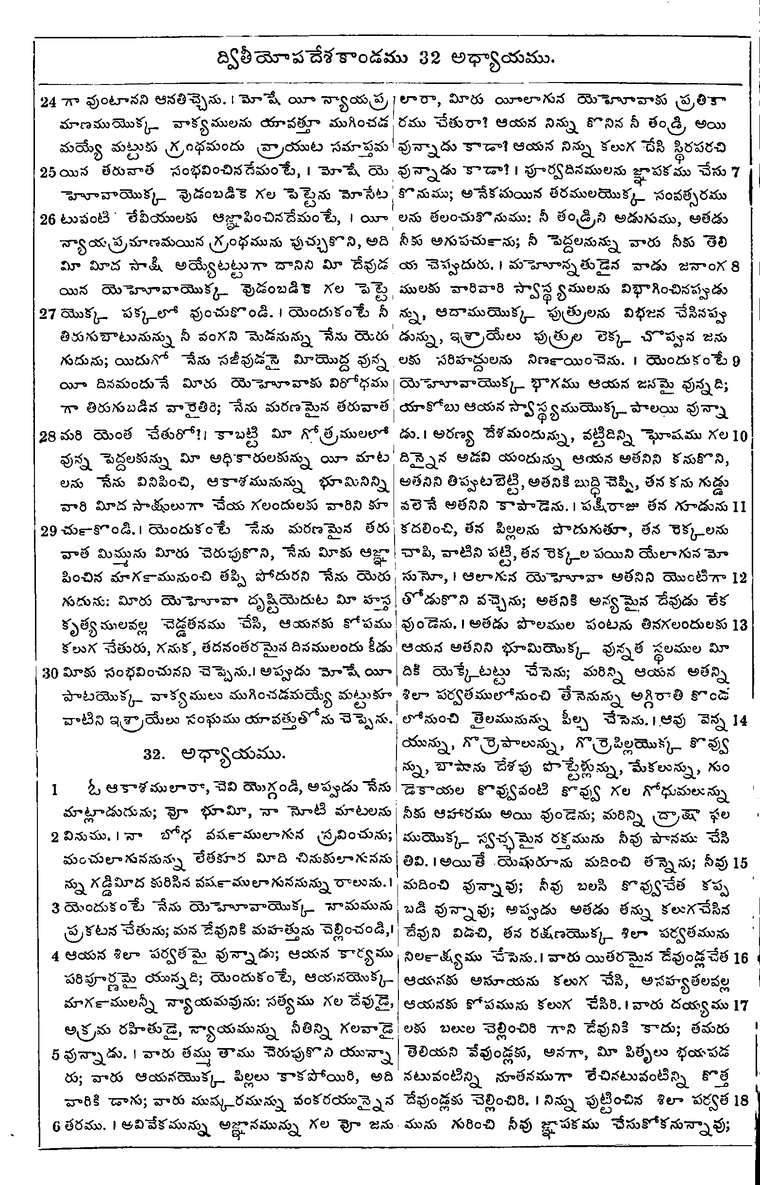 ద్వితీయోపదేశకాండము 32 అధ్యాయము.
24 గా వుంటానని ఆనతిచ్చెను. । మోషే యీ న్యాయప్ర
మాణముయొక్క వాక్యములను యావత్తూ ముగించడ
మయ్యే మట్టుకు గ్రంథమందు వ్రాయుట సమాప్తమ
25 యిన తరువాత సంభవించినదేమంటే, । మోషే యె
హోవాయొక్క వుడంబడిక గల పెట్టెను మోసేట
26 టువంటి లేవీయులకు ఆజ్ఞాపించినదేమంటే, । యీ
న్యాయప్రమాణమయిన గ్రంథమును పుచ్చుకొని, అది
మీ మీద సాక్షి అయ్యేటట్టుగా దానిని మీ దేవుడ
యిన యెహోవాయొక్క వుడంబడిక గల పెట్టె
27 యొక్క పక్కలో వుంచుకొండి. । యెందుకంటే నీ
తిరుగుబాటునున్ను నీ వంగని మెడనున్ను నేను యెరు
గుదును; యిదుగో నేను సజీవుడనై మీయొద్ద వున్న
యీ దినమందునే మీరు యెహోవాకు విరోధము
గా తిరుగుబడిన వారైతిరి; నేను మరణమైన తరువాత
28 మరి యెంత చేతురో?। కాబట్టి మీ గోత్రములలో
వున్న పెద్దలకున్ను మీ అధికారులకున్ను యీ మాట
లను నేను వినిపించి, ఆకాశమునున్ను భూమినిన్ని
వారి మీద సాక్షులుగా చేయ గలందులకు వారిని కూ
29 చుకొండి. । యెందుకంటే నేను మరణమైన తరు
వాత మిమ్మును మీరు చెరుపుకొని, నేను మీకు ఆజ్ఞా
పించిన మార్గమునుంచి తప్పి పోదురని నేను యెరు
గుదును: మీరు యెహోవా దృష్టియెదుట మీ హస్త
కృత్యములవల్ల చెడ్డతనము చేసి, ఆయనకు కోపము
కలుగ చేతురు, గనుక, తదనంతరమైన దినములందు కీడు
30 మీకు సంభవించునని చెప్పెను. । అప్పుడు మోషే యీ
పాటయొక్క వాక్యములు ముగించడమయ్యే మట్టుకూ
వాటిని ఇశ్రాయేలు సంఘము యావత్తుతోను చెప్పెను.
32. అధ్యాయము.
1 ఓ ఆకాశములారా, చెవి యొగ్గండి, అప్పుడు నేను
మాట్లాడుదును; వో భూమీ, నా నోటి మాటలను
2 వినుము. । నా బోధ వర్షములాగున స్రవించును;
మంచులాగుననున్ను లేతకూర మీది చినుకులాగునను
న్ను గడ్డిమీద కురిసిన వర్షములాగుననున్ను రాలును. ।
3 యెందుకంటే నేను యెహోవాయొక్క నామమును
ప్రకటన చేతును; మన దేవునికి మహత్తును చెల్లించండి, ।
4 ఆయన శిలా పర్వతమై వున్నాడు; ఆయన కార్యము
పరిపూర్ణమై యున్నది; యెందుకంటే, ఆయనయొక్క
మార్గములన్నీ న్యాయమవును: సత్యము గల దేవుడై,
అక్రమ రహితుడై, న్యాయమున్ను నీతిన్ని గలవాడై
5 వున్నాడు. । వారు తమ్ము తాము చెరుపుకొని యున్నా
రు; వారు ఆయనయొక్క పిల్లలు కాకపోయిరి, అది
వారికి డాగు; వారు ముష్కరమున్ను వంకరయున్నైన
6 తరము. । అవివేకమున్ను అజ్ఞానమున్ను గల వో జను
లారా, మీరు యీలాగున యెహోవాకు ప్రతికా
రము చేతురా? ఆయన నిన్ను కొనిన నీ తండ్రి అయి
వున్నాడు కాడా? ఆయన నిన్ను కలుగ చేసి స్థిరపరచి
వున్నాడు కాడా?। పూర్వదినములను జ్ఞాపకము చేసు 7
కొనుము; అనేకమయిన తరములయొక్క సంవత్సరము
లను తలంచుకొనుము: నీ తండ్రిని అడుగుము, అతడు
నీకు అగుపర్చును; నీ పెద్దలనున్న వారు నీకు తెలి
య చెప్పుదురు. । మహోన్నతుడైన వాడు జనాంగ 8
ములకు వారివారి స్వాస్థ్యములను విభాగించినప్పుడు
న్ను, ఆదాముయొక్క పుత్రులను విభజన చేసినప్పు
డున్ను, ఇశ్రాయేలు పుత్రుల లెక్క చొప్పున జను
లకు సరిహద్దులను నిర్ణయించెను. । యెందుకంటే 9
యెహోవాయొక్క భాగము ఆయన జనమై వున్నది;
యాకోబు ఆయన స్వాస్థ్యముయొక్క పాలయి వున్నా
డు. । అరణ్య దేశమందున్ను, వట్టిదిన్ని ఘోషము గల 10
దిన్నైన అడవి యందున్ను ఆయన అతనిని కనుకొని,
అతనిని తిప్పుటబెట్టి, అతనికి బుద్ధి చెప్పి, తన కను గుడ్డు
వలెనే అతనిని కాపాడెను. । పక్షిరాజు తన గూడును 11
కదలించి, తన పిల్లలను పొదుగుతూ, తన రెక్కలను
చాపి, వాటిని పట్టి, తన రెక్కల పయిని యేలాగున మో
సునో, । ఆలాగున యెహోవా అతనిని యొంటిగా 12
తోడుకొని వచ్చెను; అతనికి అన్యమైన దేవుడు లేక
వుండెను. । అతడు పొలముల పంటను తినగలందులకు 13
ఆయన అతనిని భూమియొక్క వున్నత స్థలముల మీ
దికి యెక్కేటట్టు చేసెను; మరిన్ని ఆయన అతన్ని
శిలా పర్వతములోనుంచి తేనెనున్ను అగ్గిరాతి కొండ
లోనుంచి తైలమునున్ను పీల్చ చేసెను. । ఆవు వెన్న 14
యున్ను, గొర్రెపాలున్ను, గొర్రెపిల్లయొక్క కొవ్వు
న్ను, బాషాను దేశపు పొట్టేళ్లున్ను, మేకలున్ను, గుం
డెకాయల కొవ్వువంటి కొవ్వు గల గోధుమలున్ను
నీకు ఆహారము అయి వుండెను; మరిన్ని ద్రాక్ష ఫల
ముయొక్క స్వచ్ఛమైన రక్తమును నీవు పానము చేసి
తివి. । అయితే యెషురూను మదించి తన్నెను; నీవు 15
మదించి వున్నావు; నీవు బలసి కొవ్వుచేత కప్ప
బడి వున్నావు; అప్పుడు అతడు తన్ను కలుగచేసిన
దేవుని విడచి, తన రక్షణయొక్క శిలా పర్వతమును
నిర్లక్ష్యము చేసెను. । వారు యితరమైన దేవుండ్లచేత 16
ఆయనకు అసూయను కలుగ చేసి, అసహ్యతలవల్ల
ఆయనకు కోపమును కలుగ చేసిరి. । వారు దయ్యము 17
లకు బలుల చెల్లించిరి గాని దేవునికి కాదు; తమరు
తెలియని వేవుండ్లకు, అనగా, మీ పితృలు భయపడ
నటువంటిన్ని నూతనముగా లేచినటువంటిన్ని కొత్త
దేవుండ్లకు చెల్లించిరి. । నిన్ను పుట్టించిన శిలా పర్వత 18
మును గురించి నీవు జ్ఞాపకము చేసుకోకనున్నావు;